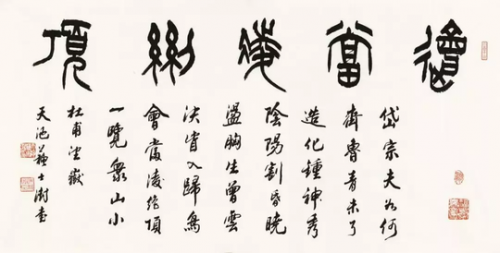 會當凌絕頂
岱宗夫如何
齊魯青未了
造化鍾神秀
陰陽割昏曉
盪胸生曾雲
決眥入歸鳥
會當凌絕頂
一覽眾山小
杜甫望嶽
蘇士澍書